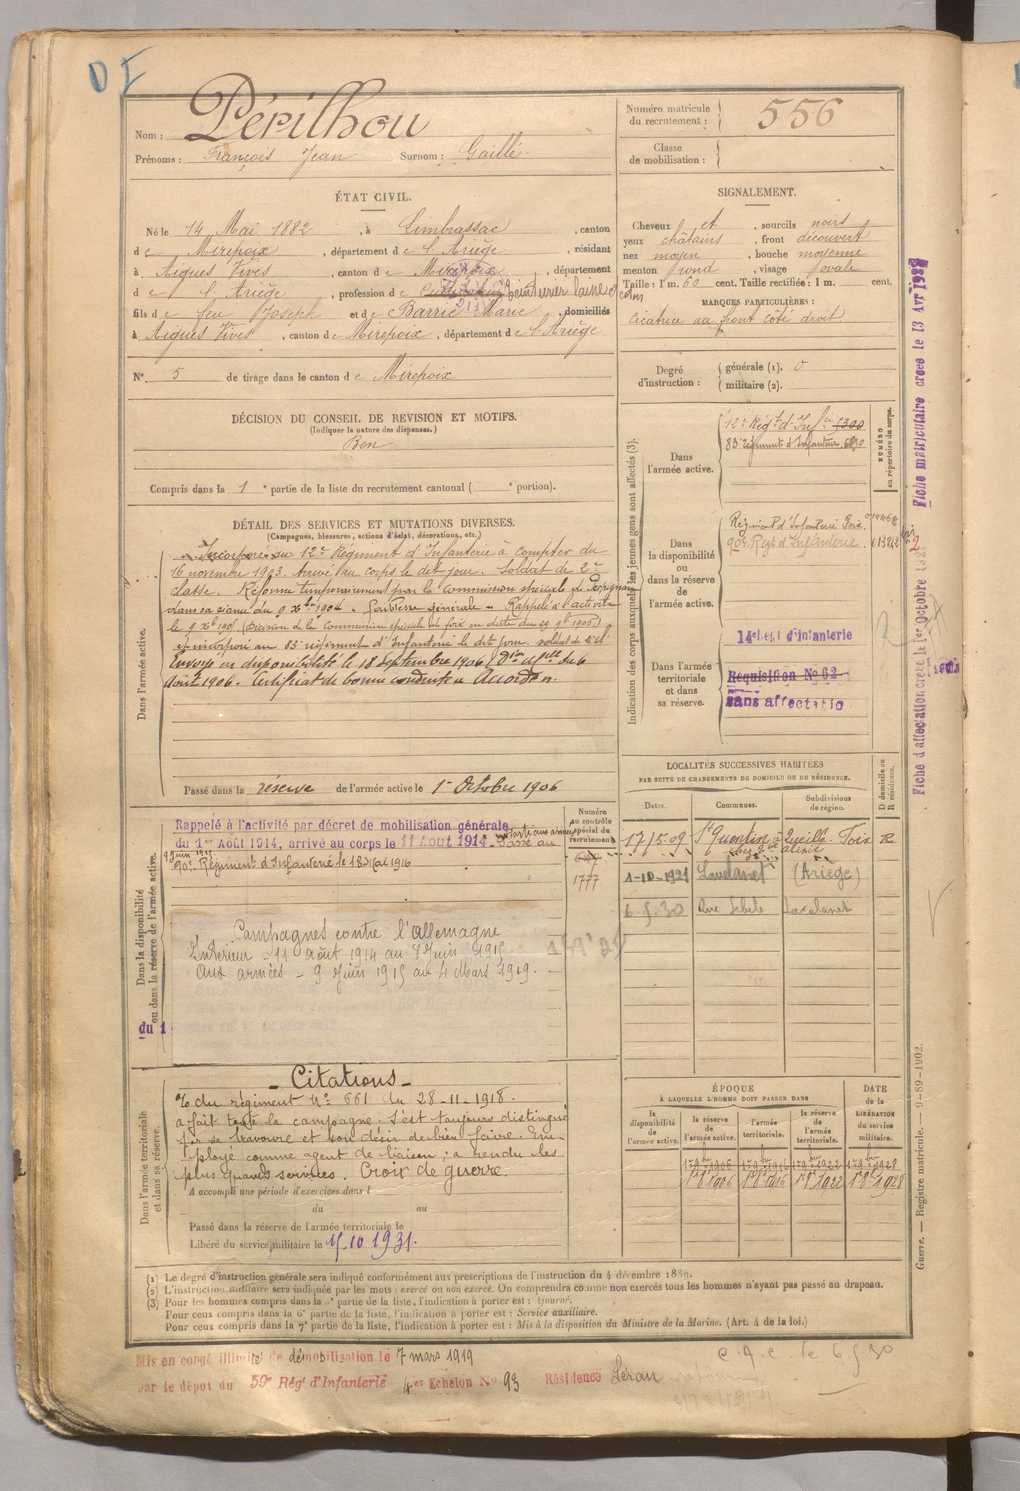 Nom : Périlhou
Prénoms : François Jean Surnom : Gaillé.
Numéro matricule du recrutement : 556
Classe de mobilisation :
ÉTAT CIVIL.
Né le 14 Mai 1882, à Limbrassac, canton
de Mirepoix, département de l'Ariège, résidant
à Aigues Vives, canton de Mirepoix, département
de l'Ariège, profession de teinturier laine et
fils de feu Joseph et de Barrie Marie domiciliés
à Aigues Vives, canton de Mirepoix, département de l'Ariège.
N° 5 de tirage dans le canton de Mirepoix
SIGNALEMENT.
Cheveux et, sourcils noirs
yeux châtains, front découvert
nez moyen, bouche moyenne
menton rond, visage ovale
Taille : 1 m. 60 cent. Taille rectifiée : 1 m. cent.
MARQUES PARTICULIÈRES :
cicatrice au front côté droit
Degré d'instruction : générale (1). 0
militaire (2).
DÉCISION DU CONSEIL DE REVISION ET MOTIFS.
(Indiquer la nature des dispenses.)
Bon
Compris dans la 1e partie de la liste du recrutement cantonal ( e portion).
DÉTAIL DES SERVICES ET MUTATIONS DIVERSES.
(Campagnes, blessures, actions d'éclat, décorations, etc.)
Dans l'armée active.
Incorporé au 12e Régiment d'Infanterie à compter du
16 novembre 1903. Arrivé au corps le dit jour. Soldat de 2e
classe. Réformé temporairement par la commission spéciale de Perpignan
dans sa séance du 9 Xbre 1904. Faiblesse générale. Rappelé à l'activité
le 9 Xbre 1905 (Décision de la Commission spéciale de Foix en date du 29 9bre 1905)
et incorporé au 83e régiment d'Infanterie le dit jour, soldat de 2e cl
Envoyé en disponibilité le 18 Septembre 1906 (Dion du 6
Août 1906. Certificat de bonne conduite "Accordé".
Passé dans la réserve de l'armée active le 1er Octobre 1906
Indication des corps auxquels les jeunes gens sont affectés (3).
NUMÉRO au répertoire du corps.
Dans l'armée active.
12e Régt d'Infrie 5300
83e régiment d'Infanterie 6890
Dans la disponibilité ou dans la réserve de l'armée active.
Régiment d'Infanterie Foix.
90e Régt d'Infanterie. 013242
Dans l'armée territoriale et dans sa réserve.
14e Dépt d'infanterie
Requisition N° 62
sans affectatio
Fiche d'affectation créée le 1er Octobre
Fiche matriculaire créée le 13 Avr 193
Dans la disponibilité ou dans la réserve de l'armée active.
Numéro au contrôle spécial du recrutement
647
1777
Rappelé à l'activité par décret de mobilisation générale
du 1er Août 1914, arrivé au corps le 11 Août 1914. Parti aux armées Passé au
9 Juin 1915
90e Régiment d'Infanterie le 1916
Campagnes contre l'allemagne
Intérieur - 11 août 1914 au 8 Juin 1915
Aux armées - 9 Juin 1915 au 4 Mars 1919.
du 1
LOCALITÉS SUCCESSIVES HABITÉES
PAR SUITE DE CHANGEMENTS DE DOMICILE OU DE RÉSIDENCE.
Dates. Communes. Subdivisions de région. D domicile ou R résidence.
17/5.09 St Quentin Foix R
1-10-1921 Lavelanet (Ariège)
6.5.30 Lavelanet
ÉPOQUE
À LAQUELLE L'HOMME DOIT PASSER DANS
la disponibilité de l'armée active. la réserve de l'armée active. l'armée territoriale. la réserve de l'armée territoriale. DATE de la LIBÉRATION du service militaire.
1er 9bre 1906 1er 9bre 1916 1er 9bre 1922 1er 9bre 1928
1er 8bre 1906 1er 8bre 1916 1er 8bre 1922 1er 8bre 1928
Dans l'armée territoriale et dans sa réserve.
- Citations -
du régiment N° 661 du 28-11-1918.
a fait toute la campagne. S'est toujours distingué
par sa bravoure et son désir de bien faire. Em-
ployé comme agent de liaison ; a rendu les
plus grands services. Croix de guerre.
A accompli une période d'exercices dans l
du au
Passé dans la réserve de l'armée territoriale le
Libéré du service militaire le 15.10 1931.
(1) Le degré d'instruction générale sera indiqué conformément aux prescriptions de l'instruction du 4 décembre 1889.
(2) L'instruction militaire sera indiquée par les mots : exercé ou non exercé. On comprendra comme non exercés tous les hommes n'ayant pas passé au drapeau.
(3) Pour les hommes compris dans la e partie de la liste, l'indication à porter est : Ajourné.
Pour ceux compris dans la 6e partie de la liste, l'indication à porter est : Service auxiliaire.
Pour ceux compris dans la 7e partie de la liste, l'indication à porter est : Mis à la disposition du Ministre de la Marine. (Art. 4 de la loi.)
Guerre. — Registre matricule. — 9-89-1902.
Mis en congé illimité de démobilisation le 7 mars 1919
par le dépôt du 59e Régt d'Infanterie 4er Echelon N° 93 Résidence Léran
C.A.C. le 6 5 30